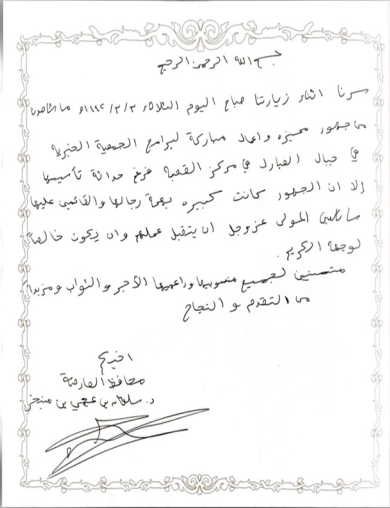 بسم الله الرحمن الرحيم
سرنا اثناء زيارتنا صباح اليوم الثلاثاء ما شاهدنا
من جهود مميزه واعمال مباركة لبرامج الجمعية الخيرية
في جبال في مركز القصبة حداثة تأسيسها
إلا ان الجهود كانت كبيره بهمة رجالها والقائمين عليها
سائلين المولى عزوجل ان يتقبل عملهم وان يكون خالصاً
لوجهه الكريم.
متمنين لجميع منسوبيها وداعميها الأجر والثواب ومزيداً
من التقدم والنجاح
اخوكم
محافظ العارضة
د. سلطان بن عجمي بن منيخر